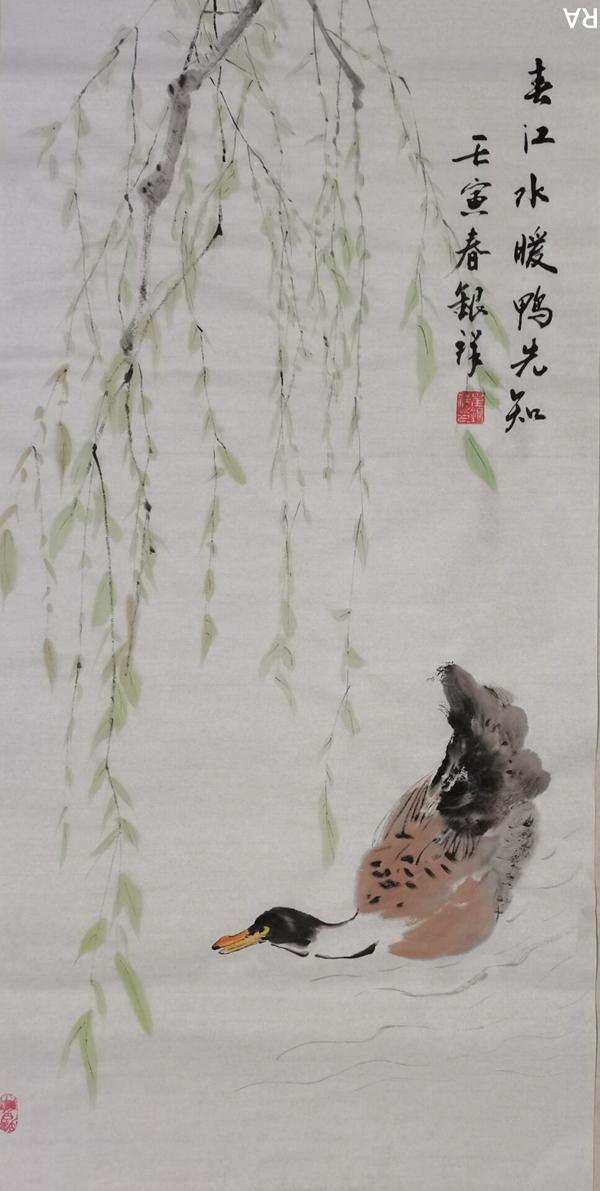 春江水暖鸭先知
壬寅春銀祥
RA